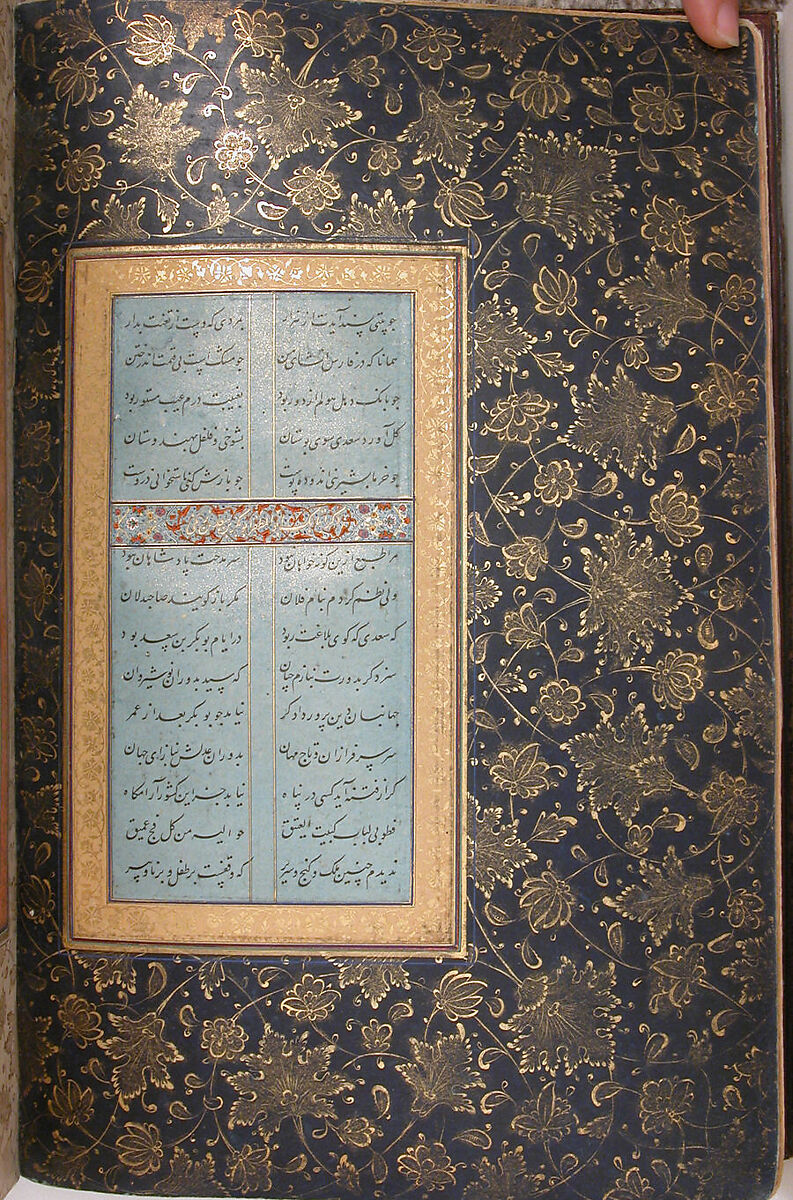 چو بیتی پسند آیدت از هزار بمردی که دست از تعنت بدار
همانا که در فارس انشای من چو مشکست بی قیمت اندر ختن
چو بانک دهل هولم از دور بود بغیبت درم عیب مستور بود
کل آورد سعدی سوی بوستان بشوخی و فلفل بهندوستان
چو خرما بشیرینی اندوده پوست چو بازش کنی استخوانی دروست
مرا طبع ازین کونه خواهان نبود سر مدحت پادشاهان نبود
ولی نظم کردم بنام فلان مکر بازکویند صاحبدلان
که سعدی که کوی بلاغت ربود در ایام بوبکر بن سعد بود
سزد کر بدورت بنازم چنان که سید بدوران نوشیروان
جهانبان دین پرور دادکر نیامد چو بوبکر بعد از عمر
سر سرفرازان و تاج مهان بدوران عدلش بناز ای جهان
کر از فتنه آید کسی در پناه نیابد جز این کشور آرامکاه
فطوبی لباب کبیت العتیق حوالیه من کل فج عمیق
ندیدم چنین ملک و کنج و سریر که وقفست بر طفل و برنا و پیر